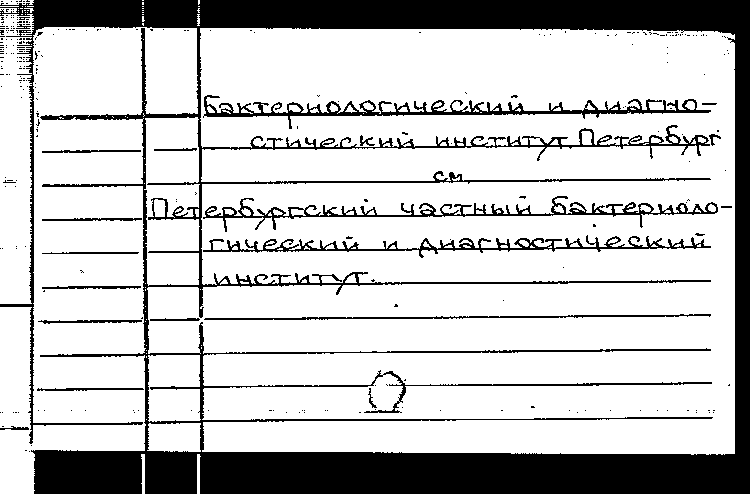 бактериологический и диагно-
стический институт Петербург
см.
Петербургский частный бактериоло-
гический и диагностический
институт.